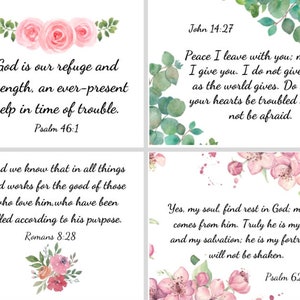 God is our refuge and
strength, an ever-present
help in time of trouble.
Psalm 46:1
John 14:27
Peace I leave with you; m
I give you. I do not giv
as the world gives. Do
your hearts be troubled
not be afraid.
nd we know that in all things
d works for the good of those
ho love him, who have been
lled according to his purpose.
Romans 8:28
Yes, my soul, find rest in God; m
comes from him. Truly he is my
and my salvation; he is my fortr
will not be shaken.
Psalm 62